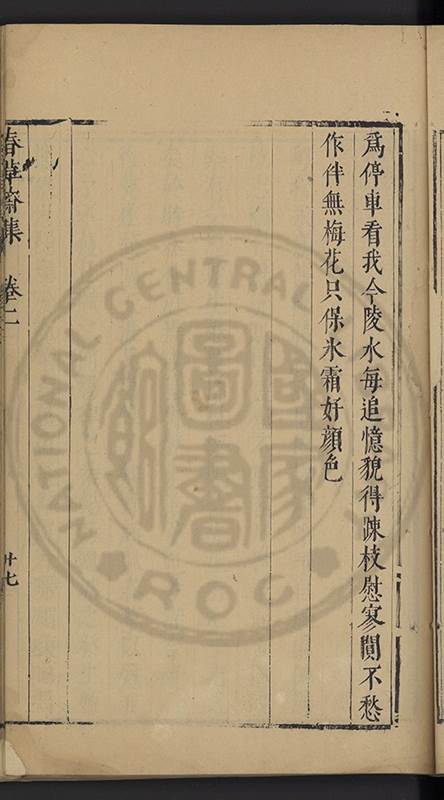 為停車看我今陵水每追憶貌得踈枝慰寥闃不愁
作伴無梅花只保氷霜好顔色
春華齋集 卷二
十七
NATIONAL CENTRAL
ROC
圖書